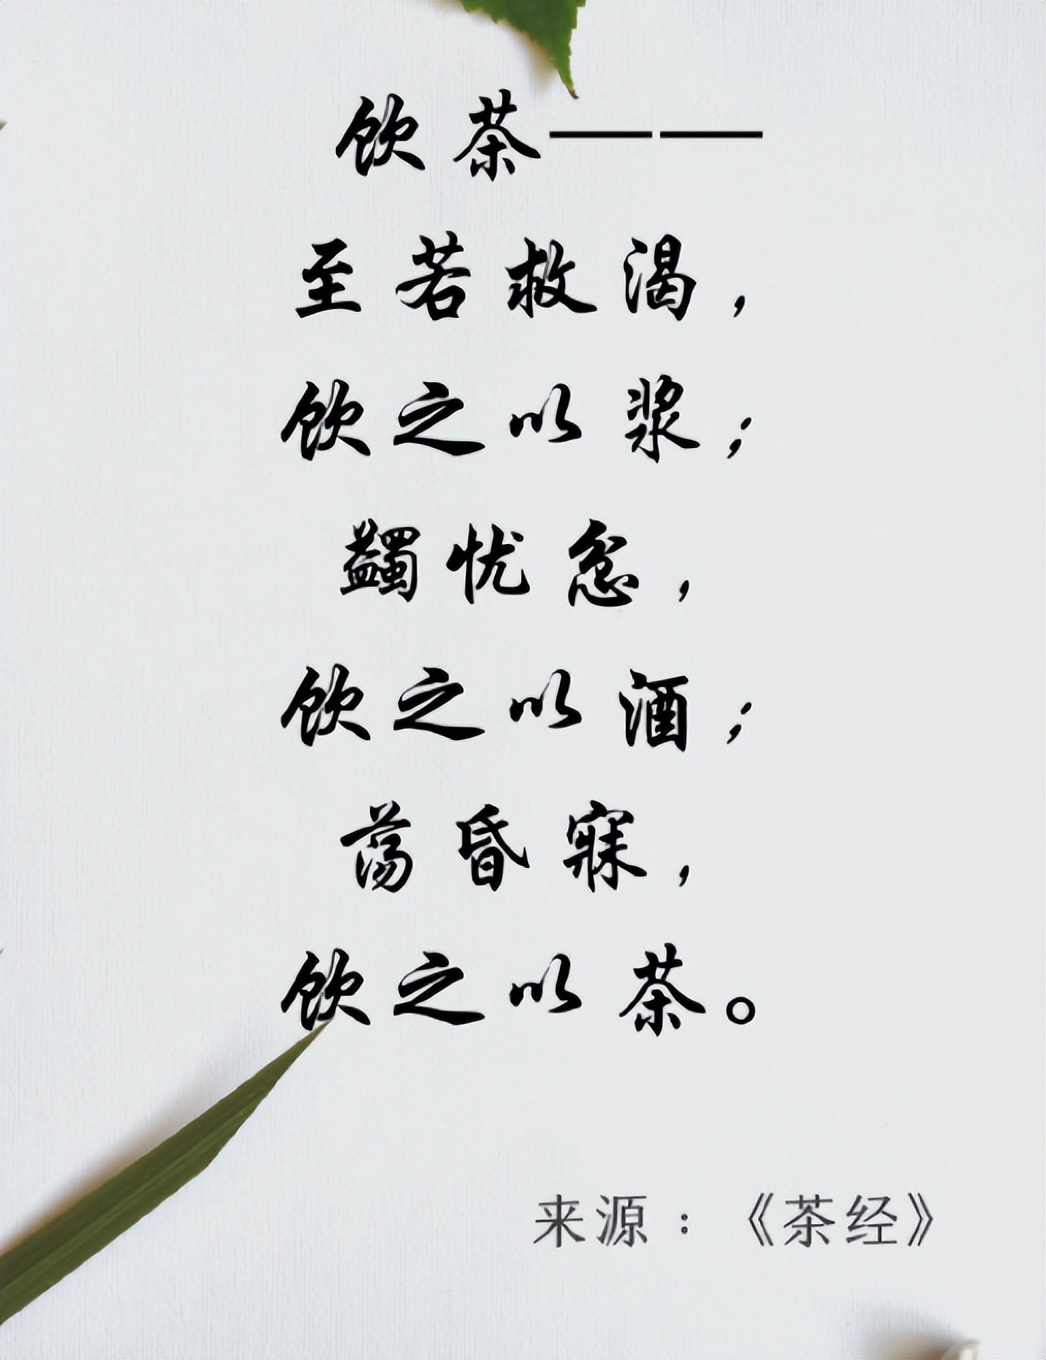 饮茶——
至若救渴，
饮之以浆；
蠲忧忿，
饮之以酒；
荡昏寐，
饮之以茶。
来源：《茶经》